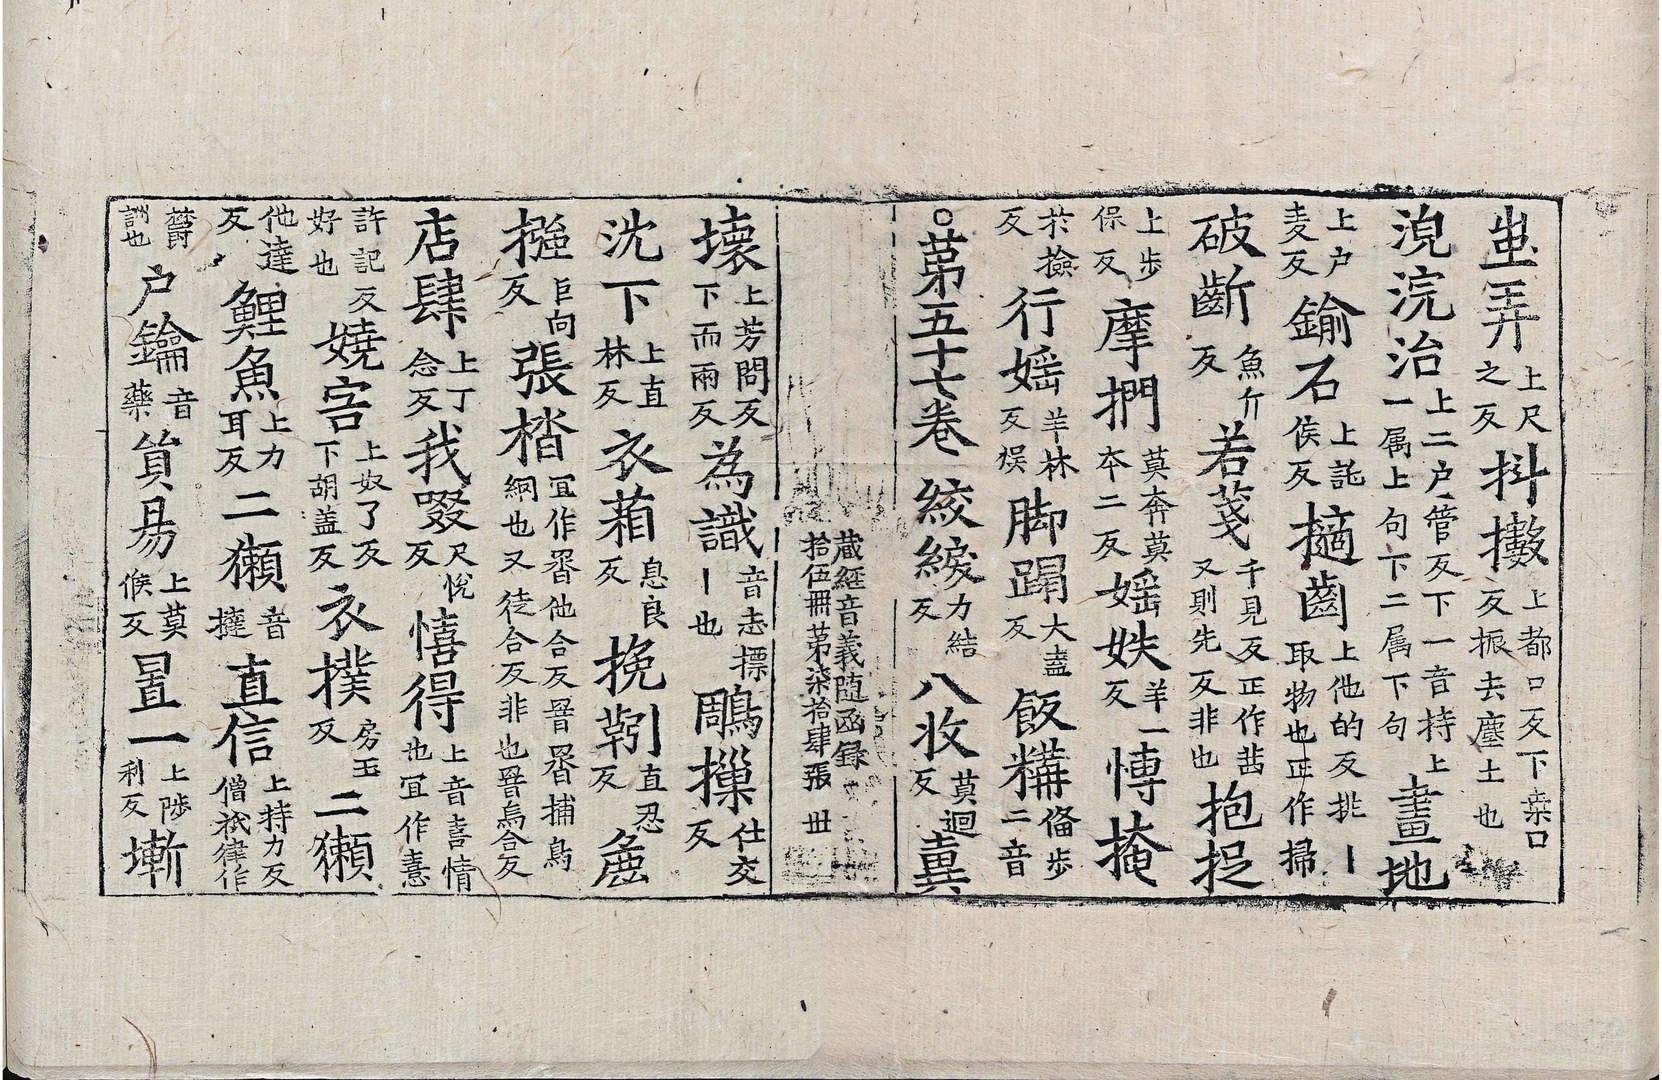 蚩弄上尺之反抖擻上都口反下桒口反振去塵土也
浼浣治上二户管反下一音持上一属上句下二属下句畫地
上户麦反鍮石上託侯反擿齒上他的反挑丨取物也正作掃
破齗魚斤反若茷千見反正作茜又則先反非也抱捉
上步保反摩捫莫奔莫夲二反婬妷羊一反愽掩
於撿反行婬羊林反悮脚躢大盍反飯糒俻步二音
○苐五十七卷絞綟力結反八收莫迴反糞
蔵經音義隨函録拾伍冊苐柒拾肆張丗
壞上芳問反下而兩反為識音志摽丨也鵰摷仕交反
沈下上直林反衣葙息良反挽靷直忍反麁
摾巨向反張㮧冝作罯他合反罯罯捕鳥網也又徒合反非也罯烏合反
店肆上丁念反我啜尺恱反憘得上音喜情也冝作憙
許記反好也嬈害上奴了反下胡盖反衣襆房玉反二獺
他達反鯉魚上力耳反二獺音撻直信上持力反僧祇律作
欝訓也户鑰音藥貿易上莫候反置一上陟利反塹